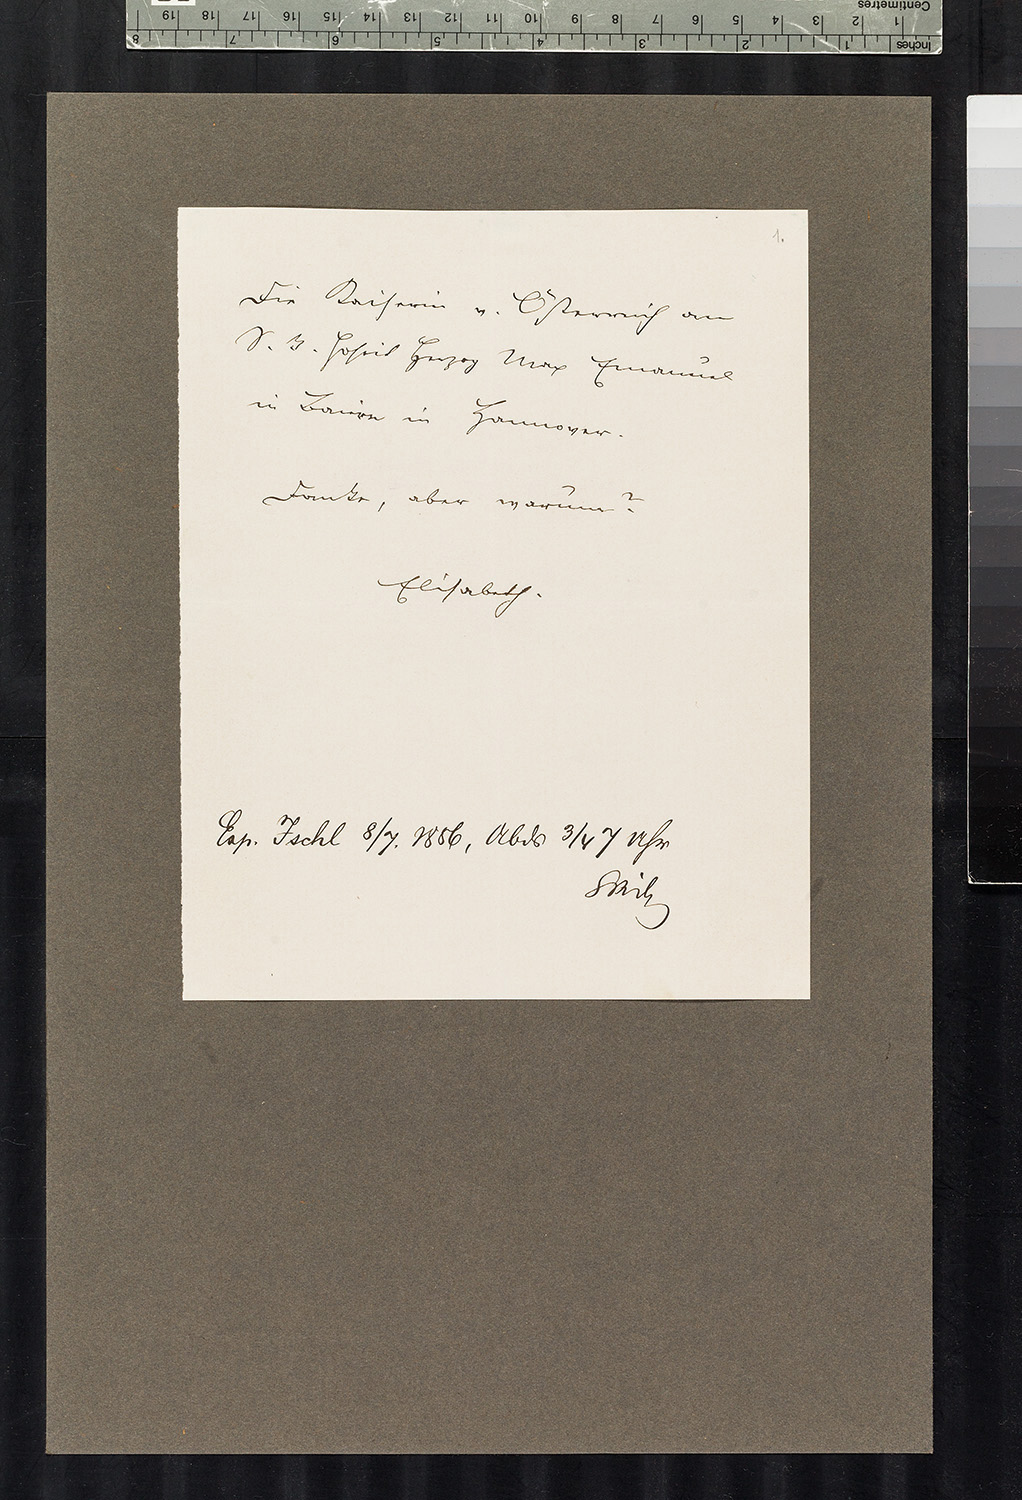 Centimetres 1 2 3 4 5 6 7 8 9 10 11 12 13 14 15 16 17 18 19
Inches 1 2 3 4 5 6 7 8
1.
Die Kaiserin v. Österreich an
S. K. Hoheit Herzog Max Emanuel
in Baiern in Hannover.
Danke, aber warum?
Elisabeth.
Exp. Ischl 8/7. 1886, Abds 3/4 7 Uhr